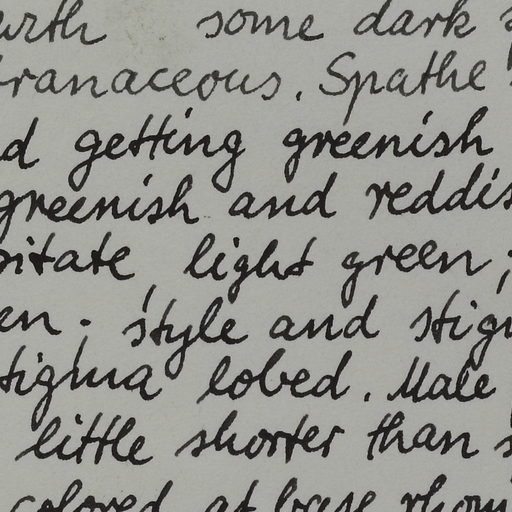 with some dark
branaceous. Spathe
d getting greenish
greenish and reddis
pitate, light green;
en; style and stig
tigma lobed. Male
little shorter than s
colored, at base rhom